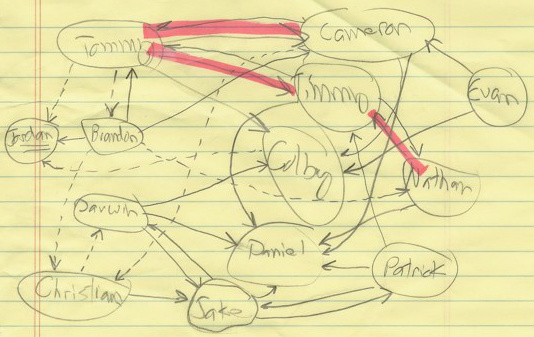 Tammy
Cameron
Timmy
Evan
Jordan
Brandon
Colby
Nathan
Darwin
Daniel
Patrick
Christian
Jake